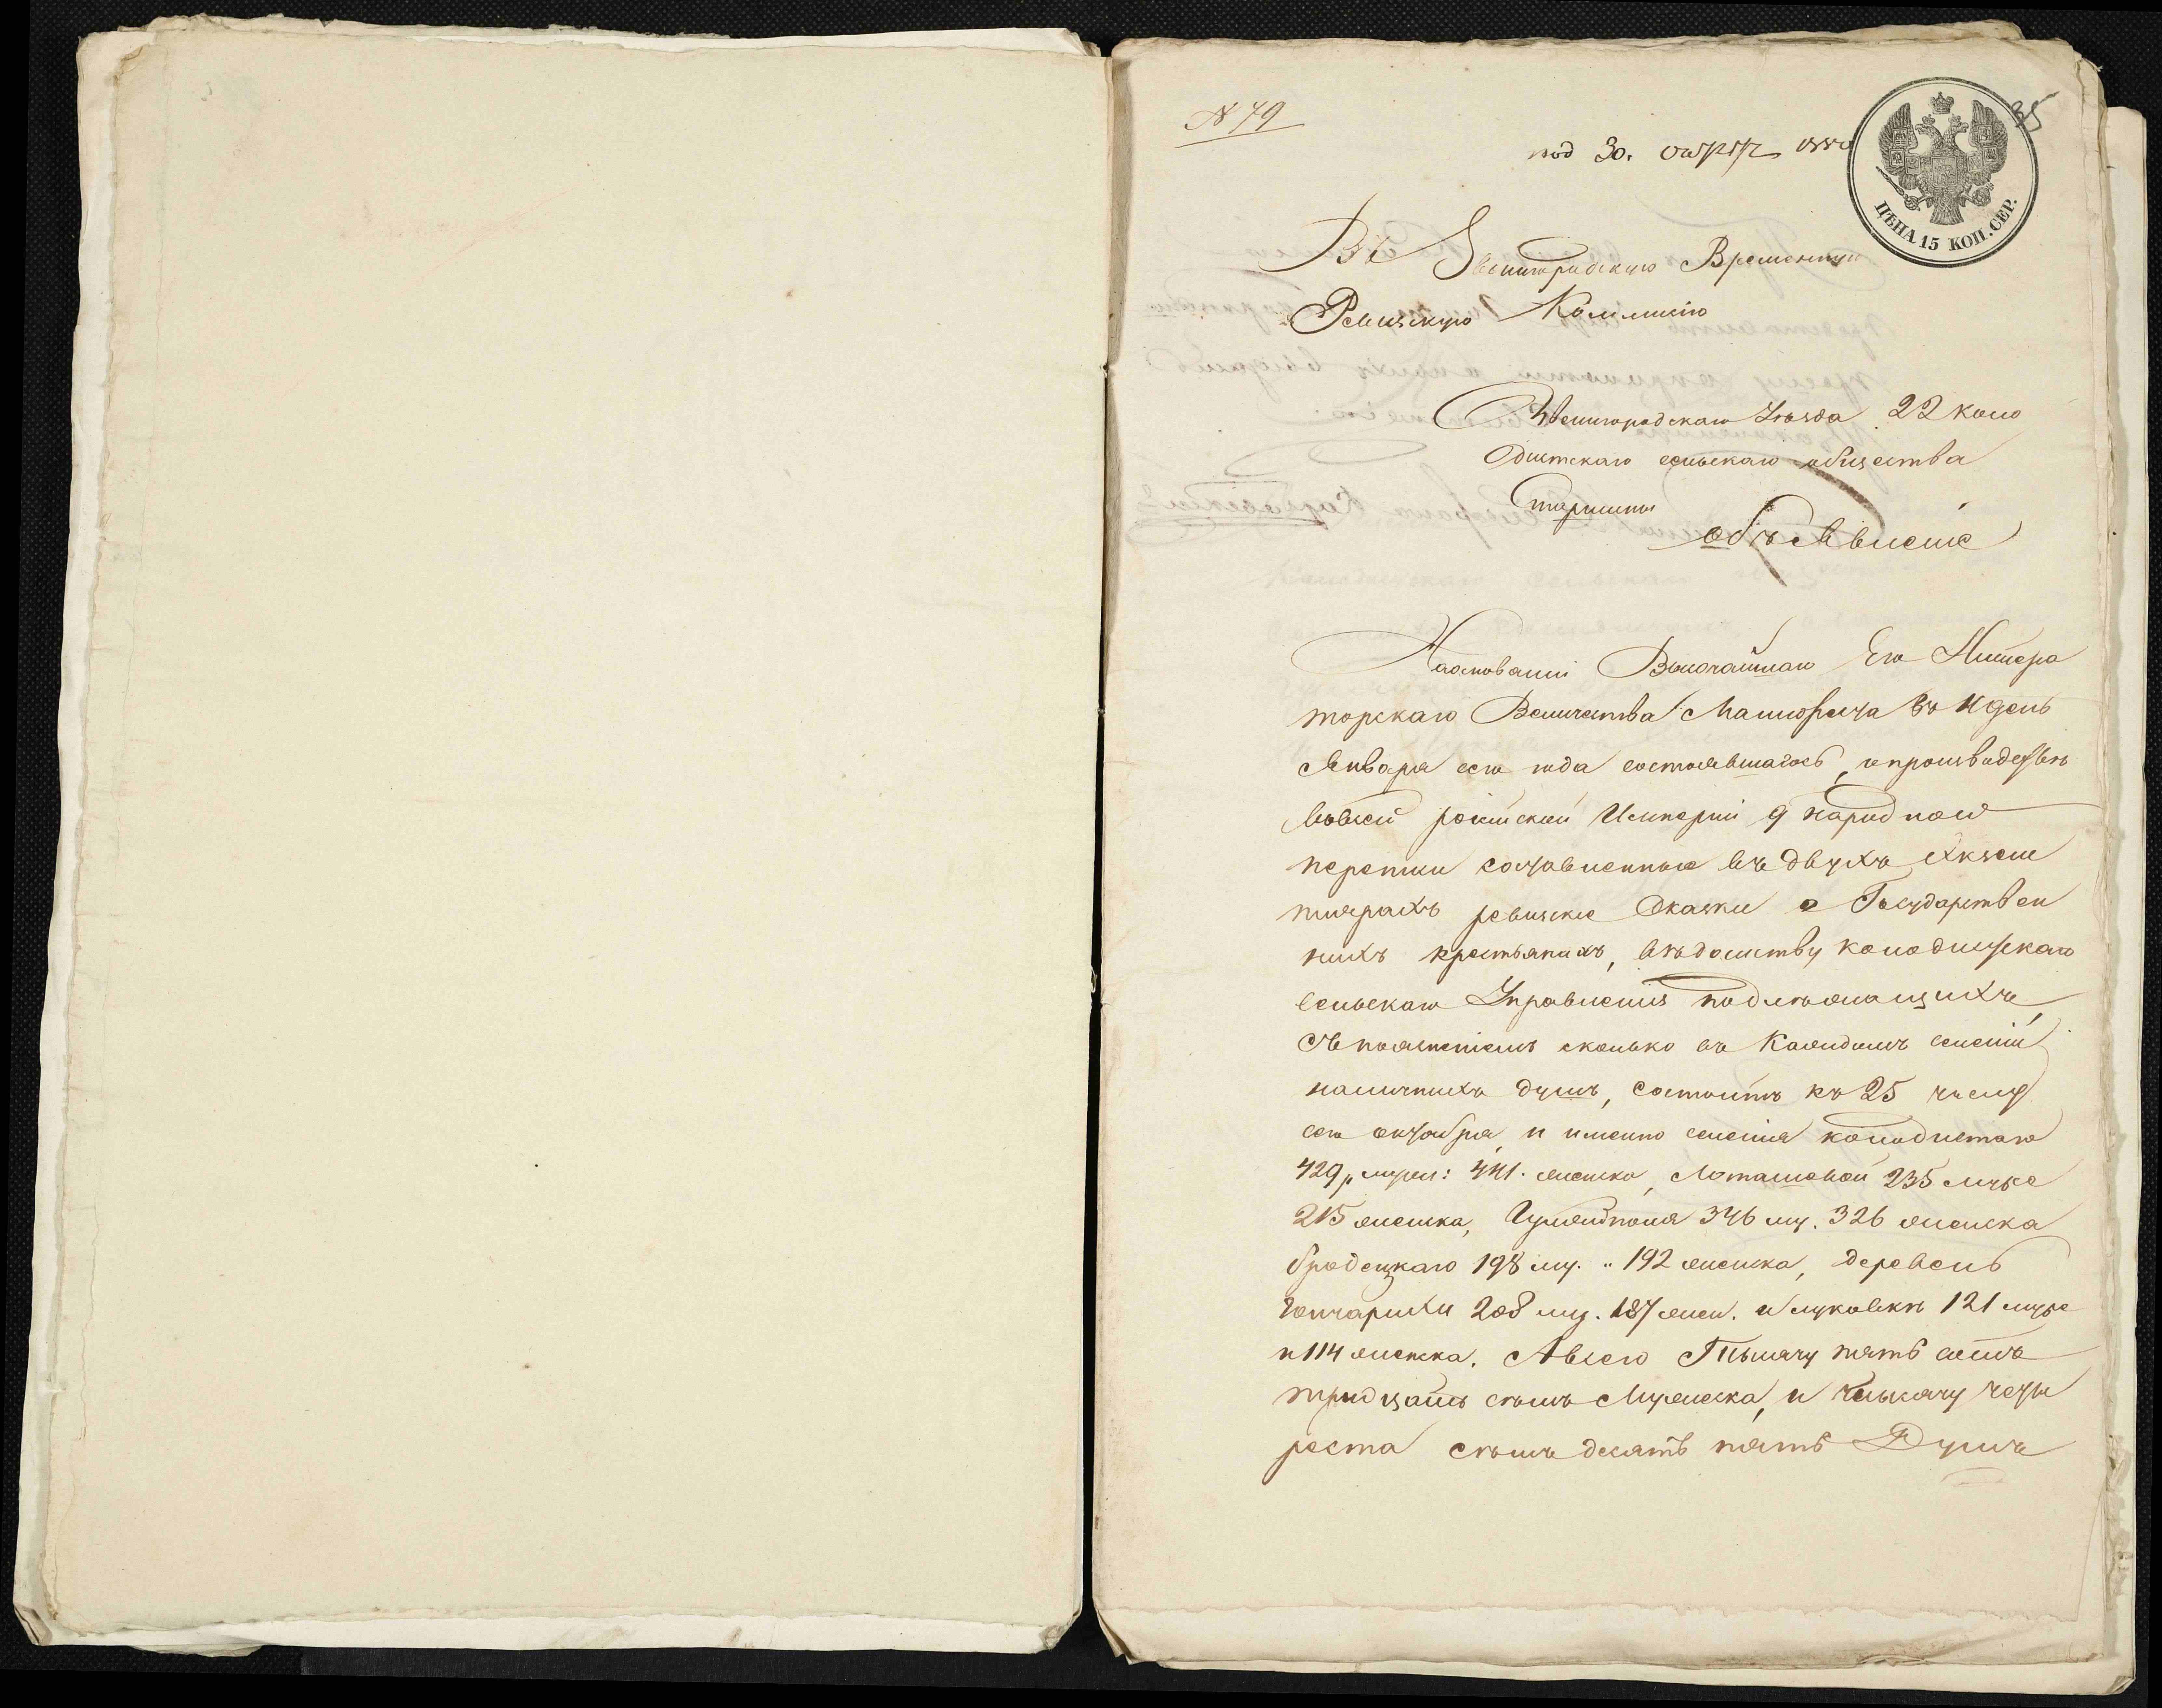 № 79
35
под 30. октября 1850
ЦѢНА 15 КОП. СЕР.
Въ Звенигородскую Временную
Ревизскую Коммисію
Звенигородскаго Уѣзда 22 Коло
дистскаго сельскаго общества
Старшины
объявленіе
На основаніи Высочайшаго Его Импера
торскаго Величества Манифеста въ 11 день
Января сего года состоявшагось, о производствѣ
вовсей россійской Имперіи 9 народной
переписи составленные въ двухъ екзем
пляраxъ ревизскіе Сказки о Государствен
нихъ крестьянахъ, вѣдомству колодистскаго
сельскаго Управленія подлежащихъ,
съ поясненіемъ сколько въ каждомъ селеніи
наличнихъ душъ, состоитъ къ 25 числу
сего октября, и именно селенія колодистаго
429, мужеск: 441. женско, Лоташовой 235 мужс
215 женска, 346 му. 326 женска
бродецкаго 198 му. 192 женска, деревень
Гончарихи 208 му. 187 жен. и луковки 121 мужс
и 114 женска. Авсего Тысячу пять сотъ
тридцать семь Мужеска, и тысячу четы
реста семъдесятъ пять Душъ